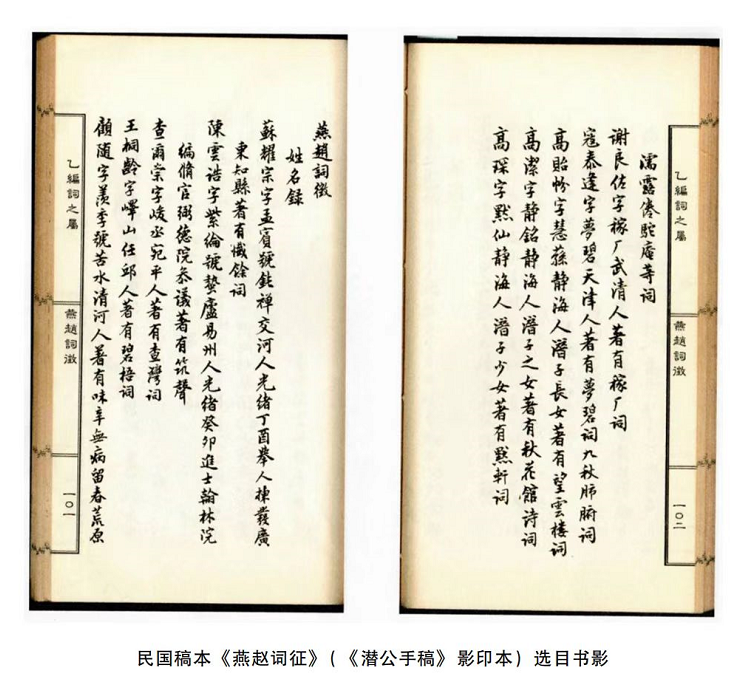 燕趙詞徵
姓名錄
蘇耀宗字孟賓號鈍禪交河人光緒丁酉舉人揀發廣
東知縣著有懺餘词
陳雲誥字紫綸號蟄廬易州人光緒癸卯進士翰林院
編脩官弼德院叅議著有筑聲
查爾宗字峻丞宛平人著有查灣词
王桐齡字嶧山任邱人著有碧梧词
顧随字羨季號苦水清河人著有味辛無病留春荒原
乙編詞之屬
燕趙詞徵
一〇一
乙編詞之屬
燕趙詞徵
一〇二
濡露倦駝庵等词
謝良佐字稼厂武清人著有稼厂词
寇泰逢字夢碧天津人著有夢碧词九秋肺腑词
高貽枌字慧蓀静海人潛子長女著有望雲楼词
高潔字静銘静海人潛子之女著有秋花館诗词
高琛字默仙静海人潛子少女著有默軒词
民国稿本《燕赵词征》(《潜公手稿》影印本) 选目书影